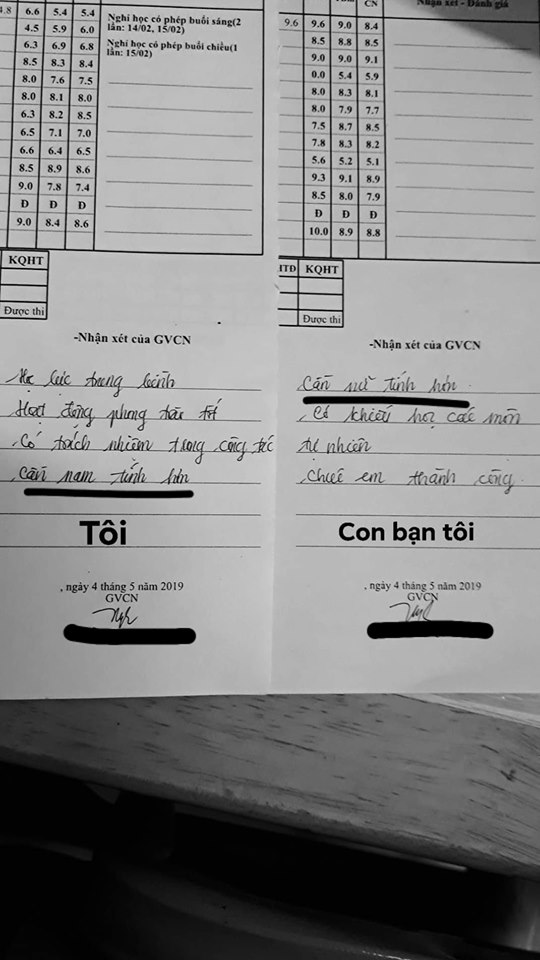 4.8 6.6 5.4 5.4
4.5 5.9 6.0
6.3 6.9 6.8
8.5 8.3 8.4
8.0 7.6 7.5
8.0 8.1 8.0
6.3 8.2 8.5
6.5 7.1 7.0
6.6 6.4 6.5
8.5 8.9 8.6
9.0 7.8 7.4
Đ Đ Đ
9.0 8.4 8.6
Nghỉ học có phép buổi sáng(2
lần: 14/02, 15/02)
Nghỉ học có phép buổi chiều(1
lần: 15/02)
KQHT
Được thi
-Nhận xét của GVCN
Học lực trung bình
Hoạt động phong trào tốt
Có trách nhiệm trong công tác
Cần nam tính hơn
Tôi
, ngày 4 tháng 5 năm 2019
GVCN
CN
Nhận xét - Đánh giá
9.6 9.6 9.0 8.4
8.5 8.8 8.5
9.0 9.0 9.1
0.0 5.4 5.9
8.0 8.3 8.1
8.0 7.9 7.7
7.5 8.7 8.5
7.8 8.3 8.2
5.6 5.2 5.1
9.3 9.1 8.9
8.5 8.0 7.9
Đ Đ Đ
10.0 8.9 8.8
KQHT
Được thi
-Nhận xét của GVCN
Cần nữ tính hơn
Có khiếu học các môn
tự nhiên
Chúc em thành công
Con bạn tôi
, ngày 4 tháng 5 năm 2019
GVCN